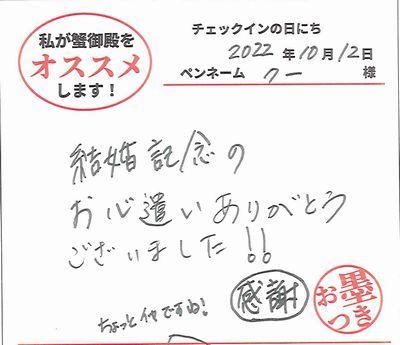 私が蟹御殿を
オススメ
します！
チェックインの日にち
2022年10月12日
ペンネーム クー 様
結婚記念の
お心遣いありがとう
ございました!!
感謝
お墨つき